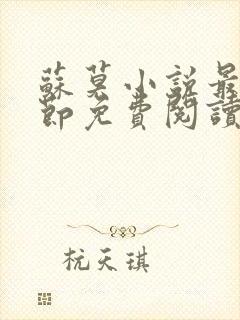 蘇莫小說最
節免費閱讀
杭天琪